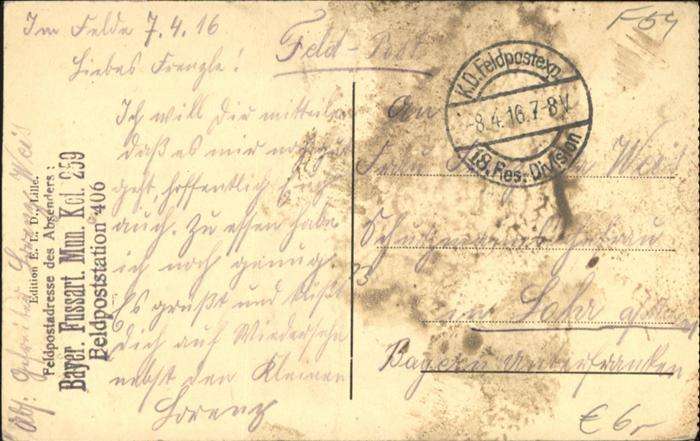 Im Felde 7.4.16
Feld-Post
F 54
Liebes Frenzle!
Ich will Dir mitteilen
daß es mir noch gut
geht, hoffentlich Euch
auch. Zu essen habe
ich noch genug.
Es grüßt und küßt
Dich auf Wiedersehn
nebst den Kleinen
Lorenz
K.D. Feldpostexp.
-8.4.16.7-8V.
18. Res. Division
An
Frau Weis
in Lohr a/
Bayern Unterfranken
€ 6,-
Edition E. L. D., Lille.
Feldpostadresse des Absenders:
Bayer. Fussart. Mun. Kol. 259
Feldpoststation 406
Abs. Gefreiter Lorenz Weis